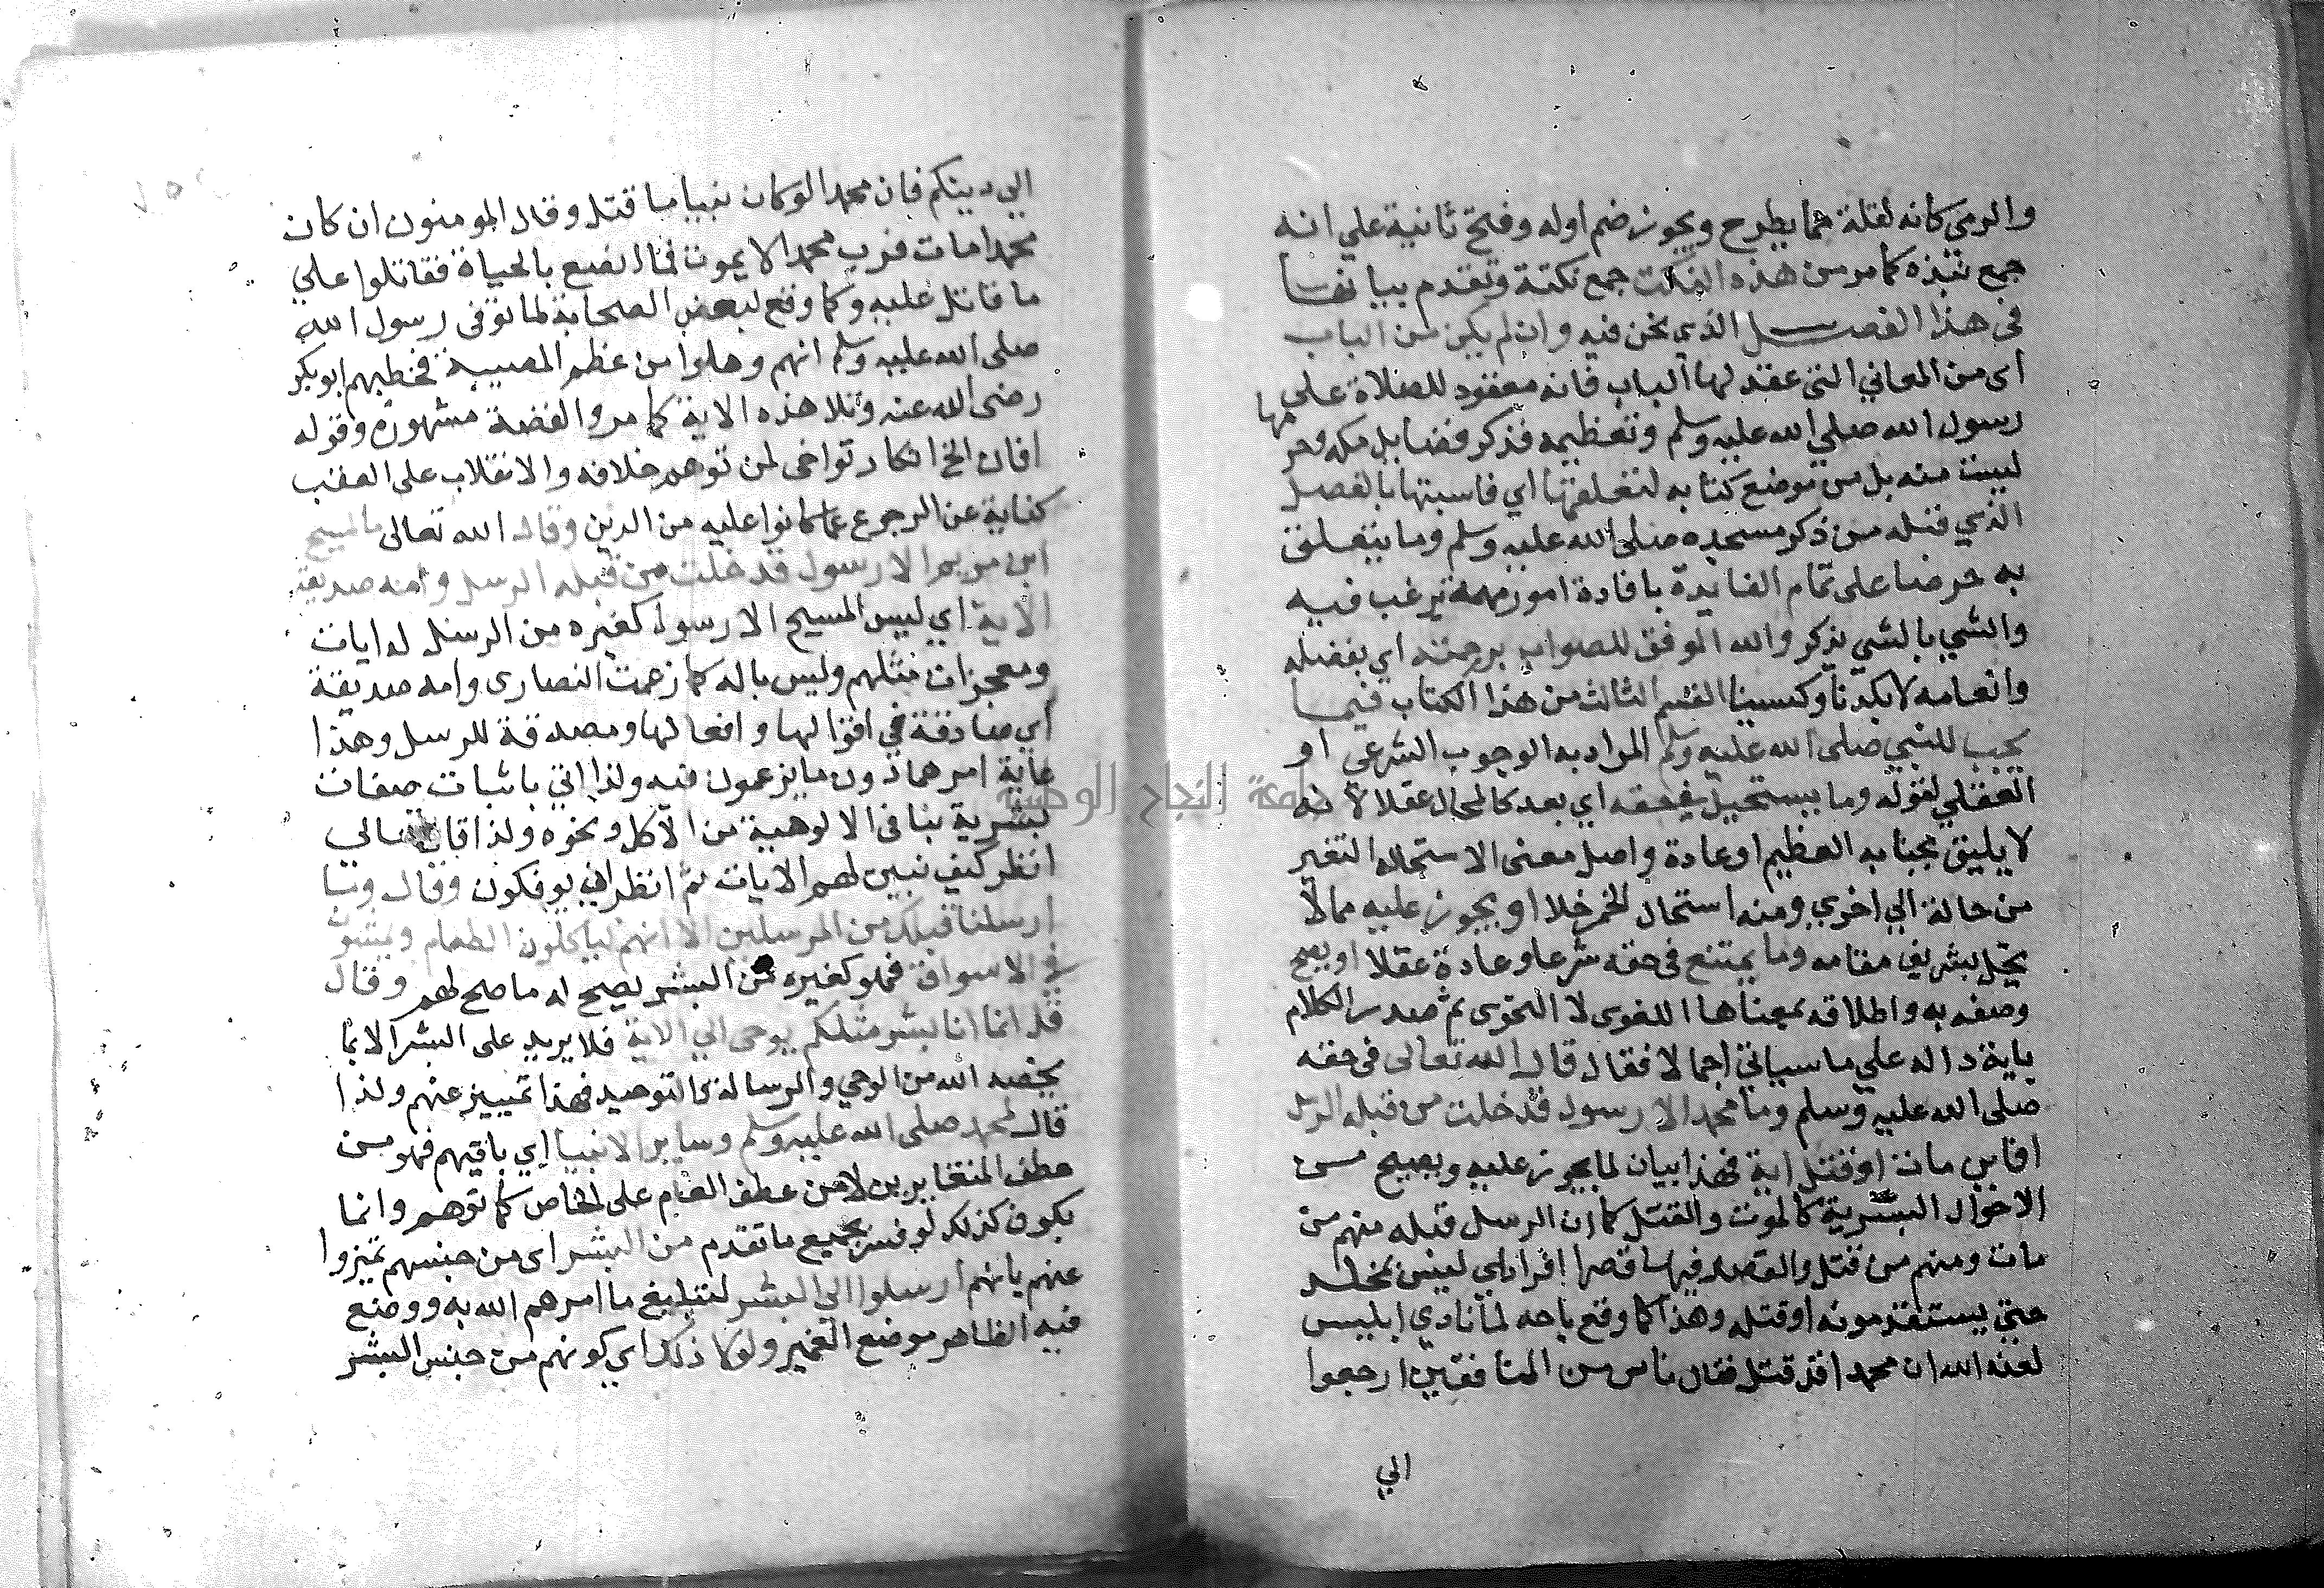 والرمي كانه لقلة مما يطرح ويجوز ضم اوله وفتح ثانية علي انه
جمع نبذه كما مر من هذه النكت جمع نكتة وتقدم بيانها
في هذا الفصل الذي نحن فيه وان لم يكن من الباب
اى من المعاني التي عقد لها الباب فانه معقود للصلاة على
رسول الله صلي الله عليه وسلم وتعظيمه فذكر فضايل مكه وحر
مها
ليست منه بل من موضع كتابه لتعلقها اي مناسبتها بالفصل
الذي قبله من ذكر مسجده صلى الله عليه وسلم وما يتعلق
به حرصا على تمام الفايدة بافادة امور مهمة يرغب فيه
والشي بالشي يذكر والله الموفق للصواب برحمته اي بفضله
وانعامه لا بكدنا وكسبنا القسم الثالث من هذا الكتاب فيما
يجب للنبي صلى الله عليه وسلم المراد به الوجوب الشرعي او
العقلي لقوله وما يستحيل في حقه اي يعد كالمحال عقلا لانه
لا يليق بجنابه العظيم او عادة واصل معنى الاستحاله التغير
من حالة الي اخري ومنه استحال الخمر خلا او يجوز عليه مما لا
يخل بشريف مقامه وما يمتنع في حقه شرعا وعادة عقلا او يصح
وصفه به واطلاقه بمعناها اللغوى لا النحوى ثم صدر الكلام
باية داله علي ما سياتي اجمالا فقال قال الله تعالى في حقه
صلى الله عليه وسلم وما محمد الا رسول قد خلت من قبله الرسل
افاين مات او قتل اية فهذا بيان لما يجوز عليه ويصح من
الاحوال البشرية كالموت والقتل كما ان الرسل قبله منهم من
مات ومنهم من قتل والقصد فيها قصر افراد اي ليس بمخلد
حتي يستبعد موته او قتله وهذا كما وقع باحد لما نادي ابليس
لعنه الله ان محمدا قد قتل فقال ناس من المنافقين ارجعوا
الي
الي دينكم فان محمدا لو كان نبيا ما قتل وقال المومنون ان كان
محمدا مات فرب محمد لا يموت فما نصنع بالحياة فقاتلوا علي
ما قاتل عليه وكما وقع لبعض الصحابة لما توفى رسول الله
صلى الله عليه وسلم انهم وهلوا من عظم المصيبة فخطبهم ابو بكر
رضى الله عنه وتلا هذه الاية كما مر والقصة مشهورة وقوله
افان الخ انكار تواخى لمن توهم خلافه والانقلاب على العقب
كناية عن الرجوع عما كانوا عليه من الدين وقال الله تعالى ما المسيح
ابن مريم الا رسول قد خلت من قبله الرسل وامه صديقة
الاية اي ليس المسيح الا رسولا كغيره من الرسل له ايات
ومعجزات مثلهم وليس باله كما زعمت النصارى وامه صديقة
اي صادقة في اقوالها وافعالها ومصدقة للرسل وهذا
غاية امرهما دون ما يزعمون فيه ولذا اتي باثبات صفات
بشرية تنافى الالوهية من الاكل ونحوه ولذا قال تعالي
انظر كيف نبين لهم الايات ثم انظر اني يوفكون وقال وما
ارسلنا قبلك من المرسلين الا انهم لياكلون الطعام ويمشون
في الاسواق فهو كغيره من البشر يصح له ما صح لهم وقال
قل انما انا بشر مثلكم يوحى الي الاية فلا يزيد على البشر الا بما
يخصه الله من الوحي والرسالة والتوحيد فهذا تمييز عنهم ولذا
قال لمحمد صلى الله عليه وسلم وساير الانبيا اي باقيهم فهو من
عطف المتغايرين لا من عطف العام على الخاص كما توهم وانما
يكون كذلك لو فسر بجميع ما تقدم من البشر اى من جنسهم تميزوا
عنهم بانهم ارسلوا الي البشر لتبليغ ما امرهم الله به ووضع
فيه الظاهر موضع الضمير ولولا ذلك اي كونهم من جنس البشر
جامعة النجاح الوطنية